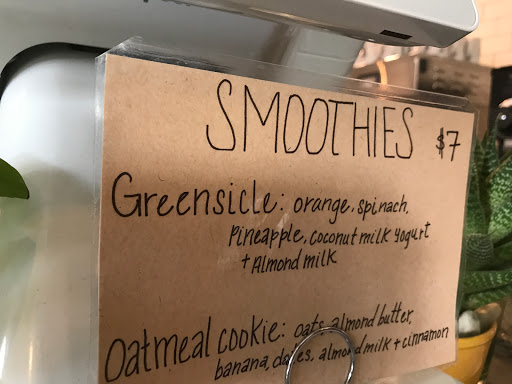 SMOOTHIES $7
Greensicle: orange, spinach,
Pineapple, coconut milk yogurt
+ Almond milk
Oatmeal cookie: oats, almond butter,
banana, dates, almond milk + cinnamon